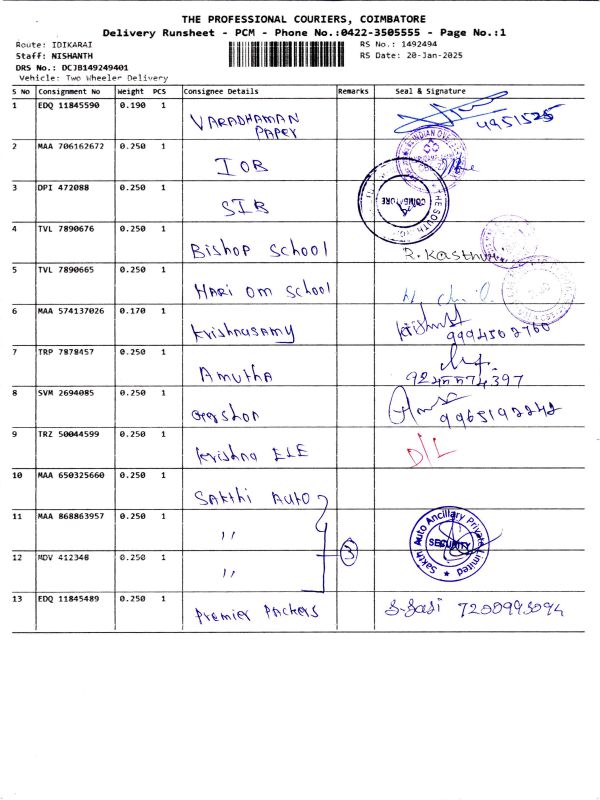 THE PROFESSIONAL COURIERS, COIMBATORE
Delivery Runsheet - PCM - Phone No.:0422-3505555 - Page No.:1
Route: IDIKARAI RS No.: 1492494
Staff: NISHANTH RS Date: 20-Jan-2025
DRS No.: DCJB149249401
Vehicle: Two Wheeler Delivery
S No Consignment No Weight PCS Consignee Details Remarks Seal & Signature
1 EDQ 11845590 0.190 1 VARADHAMAN PAPER 4951525
2 MAA 706162672 0.250 1 IOB
3 DPI 472088 0.250 1 SIB COIMBATORE THE SOUTH
4 TVL 7890676 0.250 1 Bishop School R. Kasthuri
5 TVL 7890665 0.250 1 HARI OM School
6 MAA 574137026 0.170 1 Krishnasamy 9994502760
7 TRP 7878457 0.250 1 Amutha
8 SVM 2694085 0.250 1 9965192242
9 TRZ 50044599 0.250 1 Krishna ELE D/L
10 MAA 650325660 0.250 1 SAKTHI AUTO
11 MAA 868863957 0.250 1 〃 Sakthi Auto Ancillary Private Limited SECURITY
12 MDV 412348 0.250 1 〃 3
13 EDQ 11845489 0.250 1 Premier Packers S-Sasi 7200993094